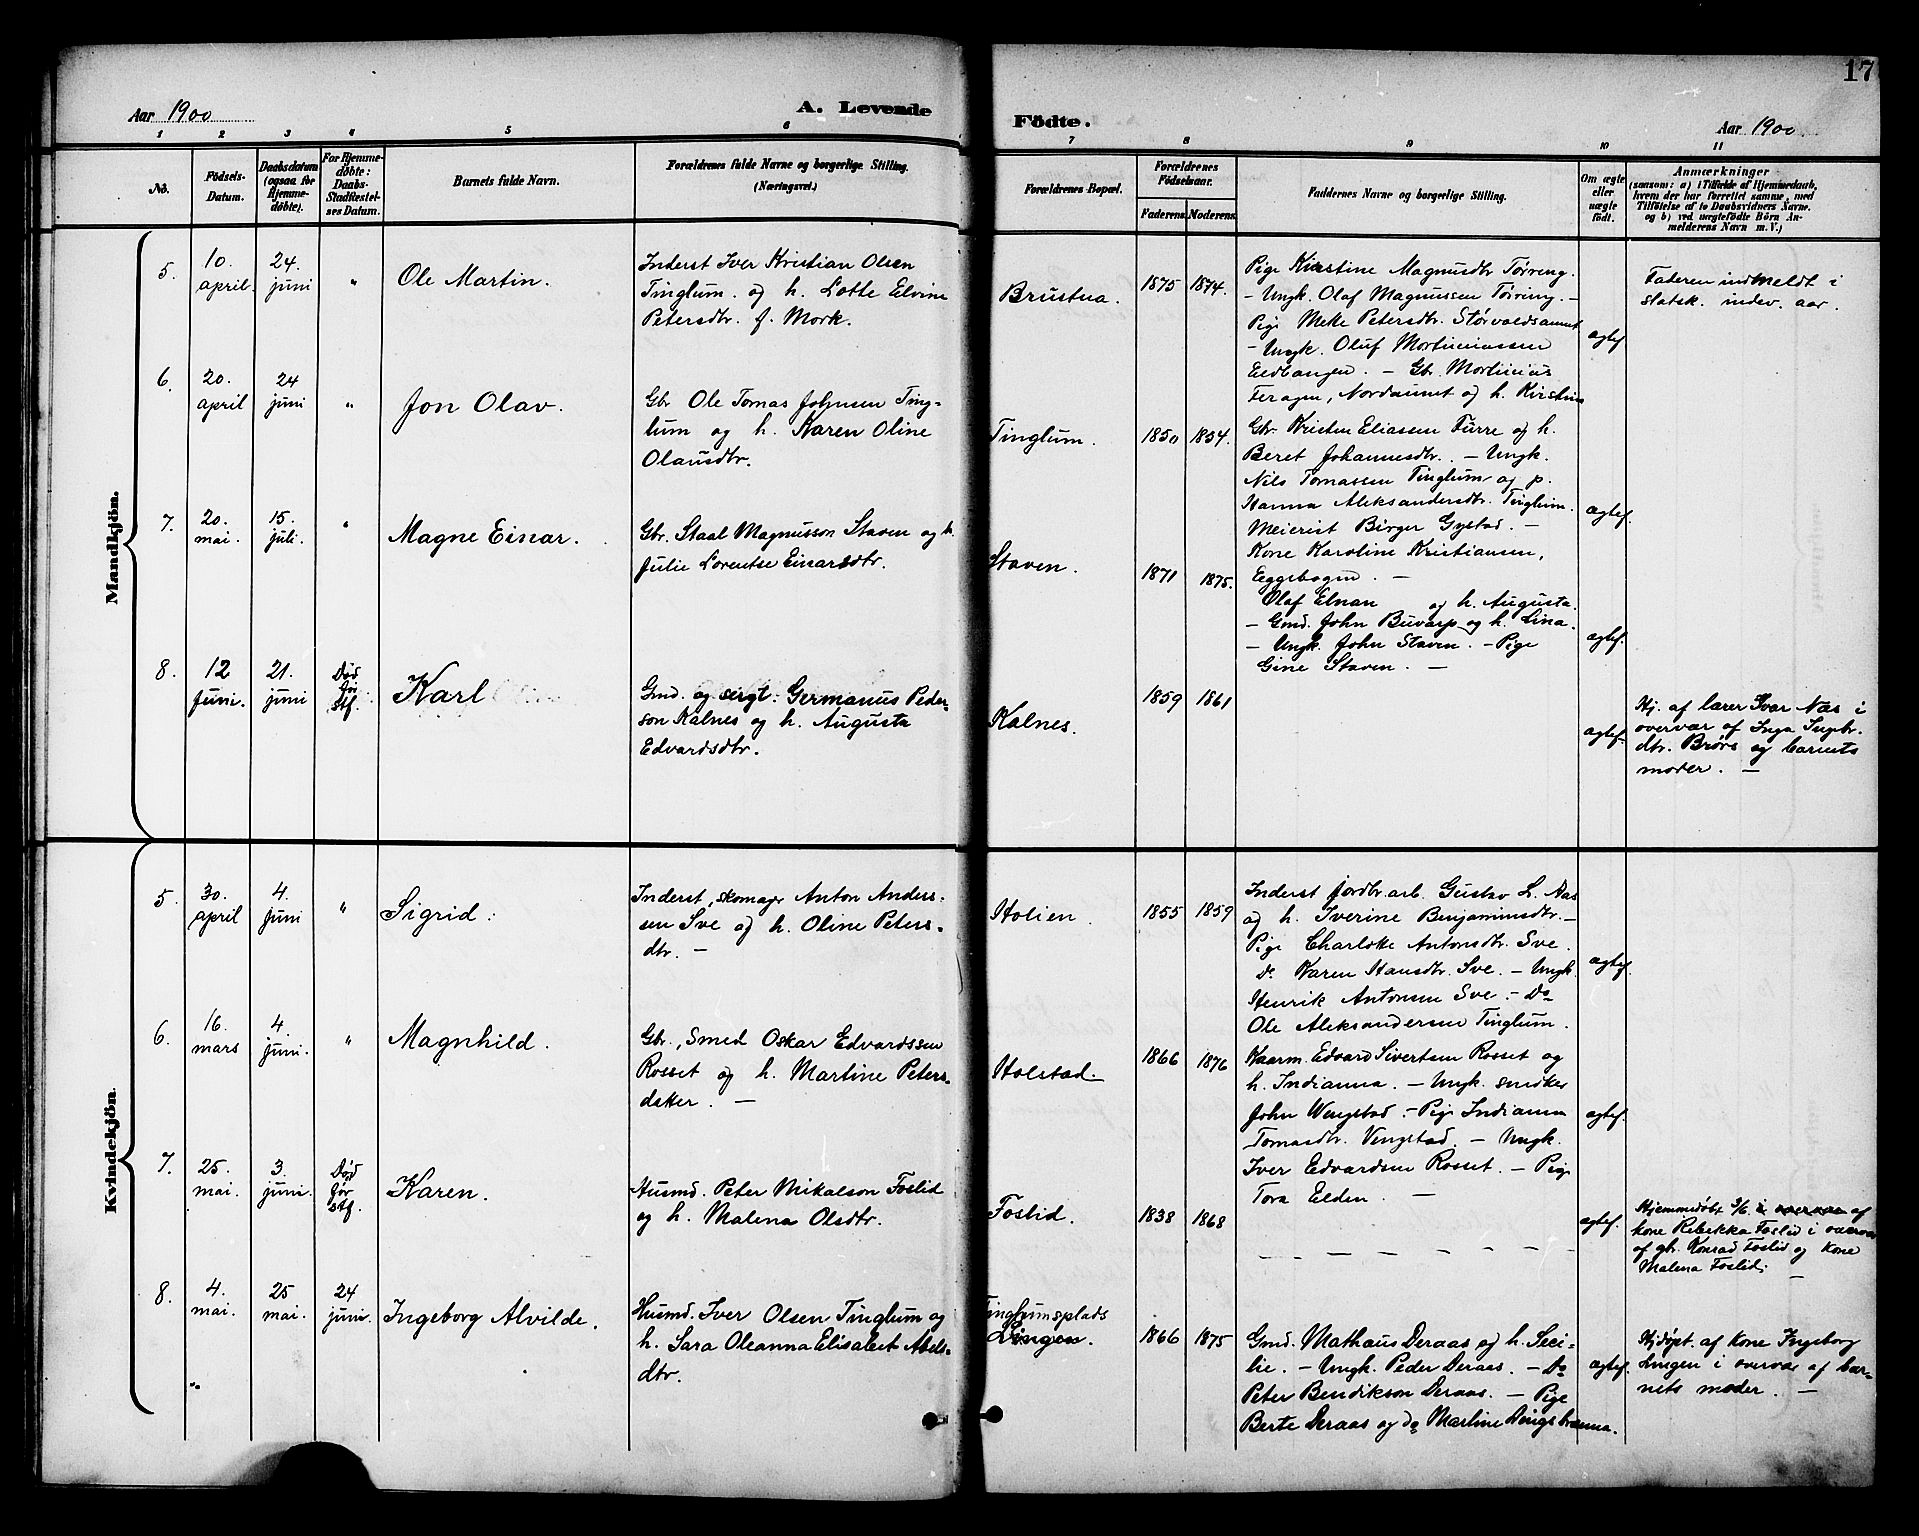 17
Aar 1900
A. Levende
Födte.
Aar 1900
1 2 3 4 5 6 7 8 9 10 11
No.
Födsels-
Datum.
Daabsdatum
(ogsaa for
Hjemme-
döbte).
For Hjemme-
døbte:
Daabs-
Stadfæstel-
ses Datum.
Barnets fulde Navn.
Forældrenes fulde Navne og borgerlige Stilling.
(Næringsvei.)
Forældrenes Bopæl.
Forældrenes
Födselsaar.
Faderens
Moderens
Faddernes Navne og borgerlige Stilling.
Om ægte
eller
uægte
födt.
Anmærkninger
(saasom: a) i Tilfælde af Hjemmedaab,
hvem der har forrettet samme, med
Tilföielse af to Daabsvidners Navne.
og b) ved uægtefödte Börn An-
melderens Navn m. V.)
Mandkjön.
5.
10.
april.
24.
juni
"
Ole Martin.
Inderst Iver Kristian Olsen
Tinglum. og h. Lotte Elvine
Petersdtr. f. Mork.
Brustua.
1875
1874.
Pige Kirstine Magnusdtr Tørring.
- Ungk. Olaf Magnussen Tørring. -
Pige Mette Petersdtr. Størvoldsaunet
- Ungk. Oluf Mortinussen
Eldbangen. - Gbr. Mortinus
Feragen, Nordaunet og h. Kirstine
ægtef.
Faderen indmeldt i
statsk. indev. aar.
6.
20.
april
24
juni
"
Jon Olav.
Gbr Ole Tomas Johnsen Ting-
lum og h. Karen Oline
Olausdtr.
Tinglum.
1850
1854.
Gbr. Kristen Eliassen Furre og h.
Beret Johannesdtr. - Ungk.
Nils Tomassen Tinglum og p.
Hanna Aleksandersdtr. Tinglum.
ægtef.
7.
20.
mai.
15.
juli.
"
Magne Einar.
Gbr. Staal Magnusson Staven og h.
Julie Lorentse Einarsdtr.
Staven.
1871
1875.
Meierist Birger Gystad. -
Kone Karoline Kristiansen,
Eggsbogen. -
Olaf Elnan og h. Augusta.
- Gmd. John Buvarp og h. Lina.
- Ungk. John Staven. - Pige
Gine Staven. -
ægtef.
8.
12
Juni.
21.
juni
Død
før
stf.
Karl
Gmd. og sergt. Germanus Peder-
son Kalnes og h. Augusta
Edvardsdtr.
Kalnes.
1859
1861
ægtef.
Hj. af lærer Ivar Næs i
overvær af Inga Ingbr.
dtr. Brørs og barnets
moder. -
Kvindekjön.
5.
30.
april
4.
Juni
"
Sigrid.
Inderst, skomager Anton Anders-
sen Sve og h. Oline Peters-
dtr. -
Holien.
1855
1859
Inderst jordbr.arb. Gustav L. Aas
og h. Iverine Benjaminsdtr. -
Pige Charlotte Antonsdtr. Sve.
Do Karen Hansdtr. Sve. - Ungk.
Henrik Antonsen Sve. - Do
Ole Aleksandersen Tinglum.
ægtef.
6.
16.
mars
4.
juni.
"
Magnhild.
Gbr., Smed Oskar Edvardssen
Rosset og h. Martine Peters-
datter. -
Holstad.
1866
1876
Kaarm. Edvard Sivertsen Rosset og
h. Indianna. - Ungk. snedker
John Wengstad. - Pige Indianna
Tomasdtr. Vengstad. - Ungk.
Iver Edvardsen Rosset. - Pige
Tora Elden. -
ægtef.
7.
25.
mai.
3.
juni.
Død
før
stf.
Karen.
Husmd. Peter Mikalson Foslid
og h. Malena Olsdtr.
Foslid.
1838
1868
- - - - - - -
ægtef.
Hjemmedøbt 3/6 i overvær af
kone Rebekka Foslid i overvær
af gbr. Konrad Foslid og kone
Malena Foslid.
-
8.
4.
mai.
25
mai.
24
juni.
Ingeborg Alvilde.
Husmd. Iver Olsen Tinglum og
h. Sara Oleanna Elisabet Abels-
dtr.
Tinglumsplads
Lingen.
1866
1875
Gmd. Mathæus Deraas og h. Seci-
lie. - Ungk. Peder Deraas. - Do
Peter Bendikson Deraas. - Pige
Berte Deraas og do Martine
ægtef.
Hjdøpt. af kone Ingeborg
Lingen i overvær af bar-
nets moder. -